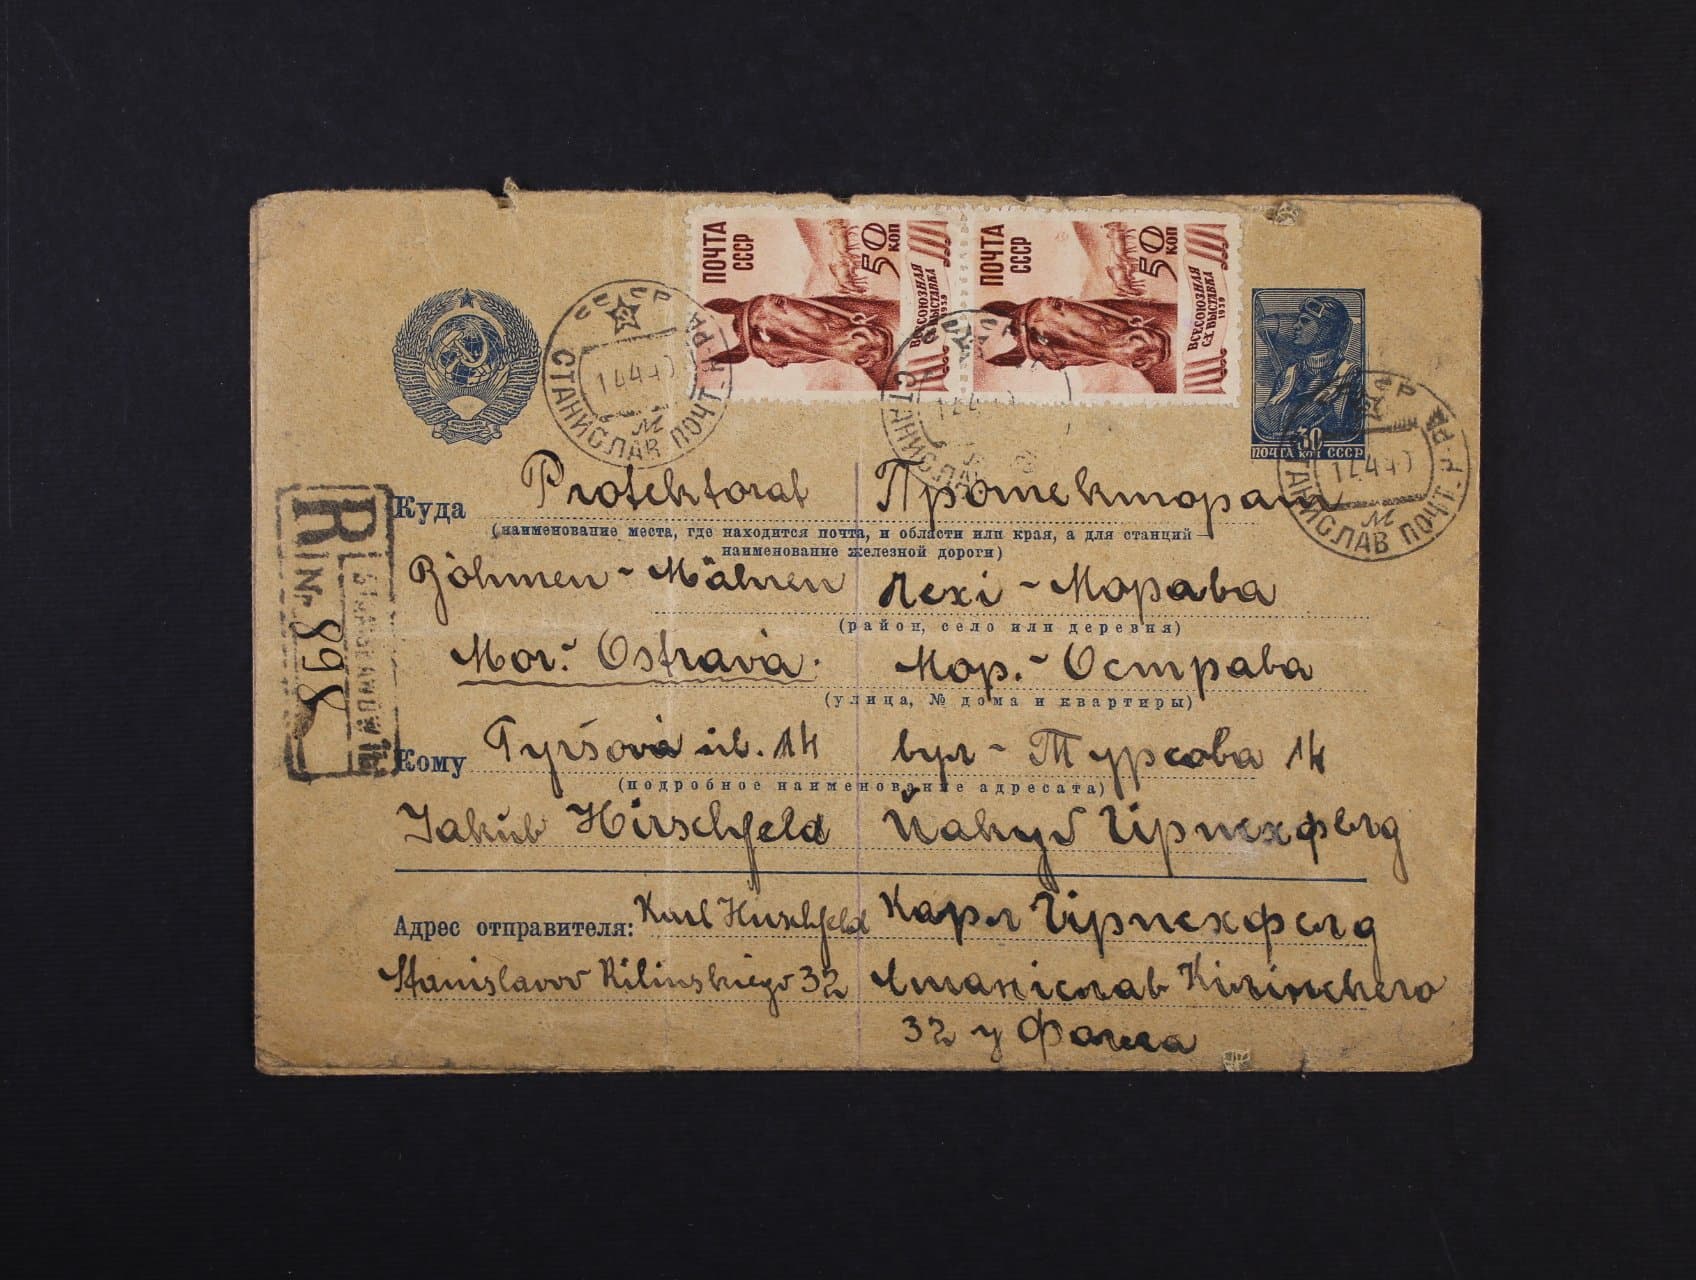 ПОЧТА СССР 50 КОП ВСЕСОЮЗНАЯ С.Х. ВЫСТАВКА 1939
ПОЧТА СССР 50 КОП ВСЕСОЮЗНАЯ С.Х. ВЫСТАВКА 1939
30 ПОЧТА КОП СССР
СССР СТАНИСЛАВ ПОЧТ.
СТАНИСЛАВ
СТАНИСЛАВ ПОЧТ.
R Nr. 898
Куда Protektorat Протекторат
(наименование места, где находится почта, и области или края, а для станций—
наименование железной дороги)
Böhmen - Mähren Чехі - Морава
(район, село или деревня)
Mor. - Ostrava. Мор. - Острава
(улица, № дома и квартиры)
Кому Tyršova ul. 14 вул - Турсова 14
(подробное наименование адресата)
Jakub Hirschfeld Йакуб Гіршхфелд
Адрес отправителя: Karl Hirschfeld Карл Гіршхфелд
Stanislavov Kilinskiego 32 Станіслав Кілінского
32 у